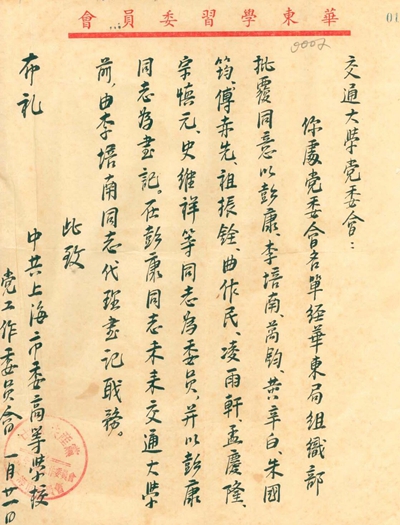 華東學習委員會
01
0002
交通大學党委會：
你處党委會名單經華東局組織部
批覆同意以彭康、李培南、萬鈞、黄辛白、朱國
筠、傅赤先、祖振銓、曲作民、凌雨軒、孟慶隆、
宗慎元、史維祥等同志為委員，并以彭康
同志為書記。在彭康同志未来交通大學
前，由李培南同志代理書記職務。
此致
布礼
中共上海市委高等學校
党工作委員會 一月廿一日